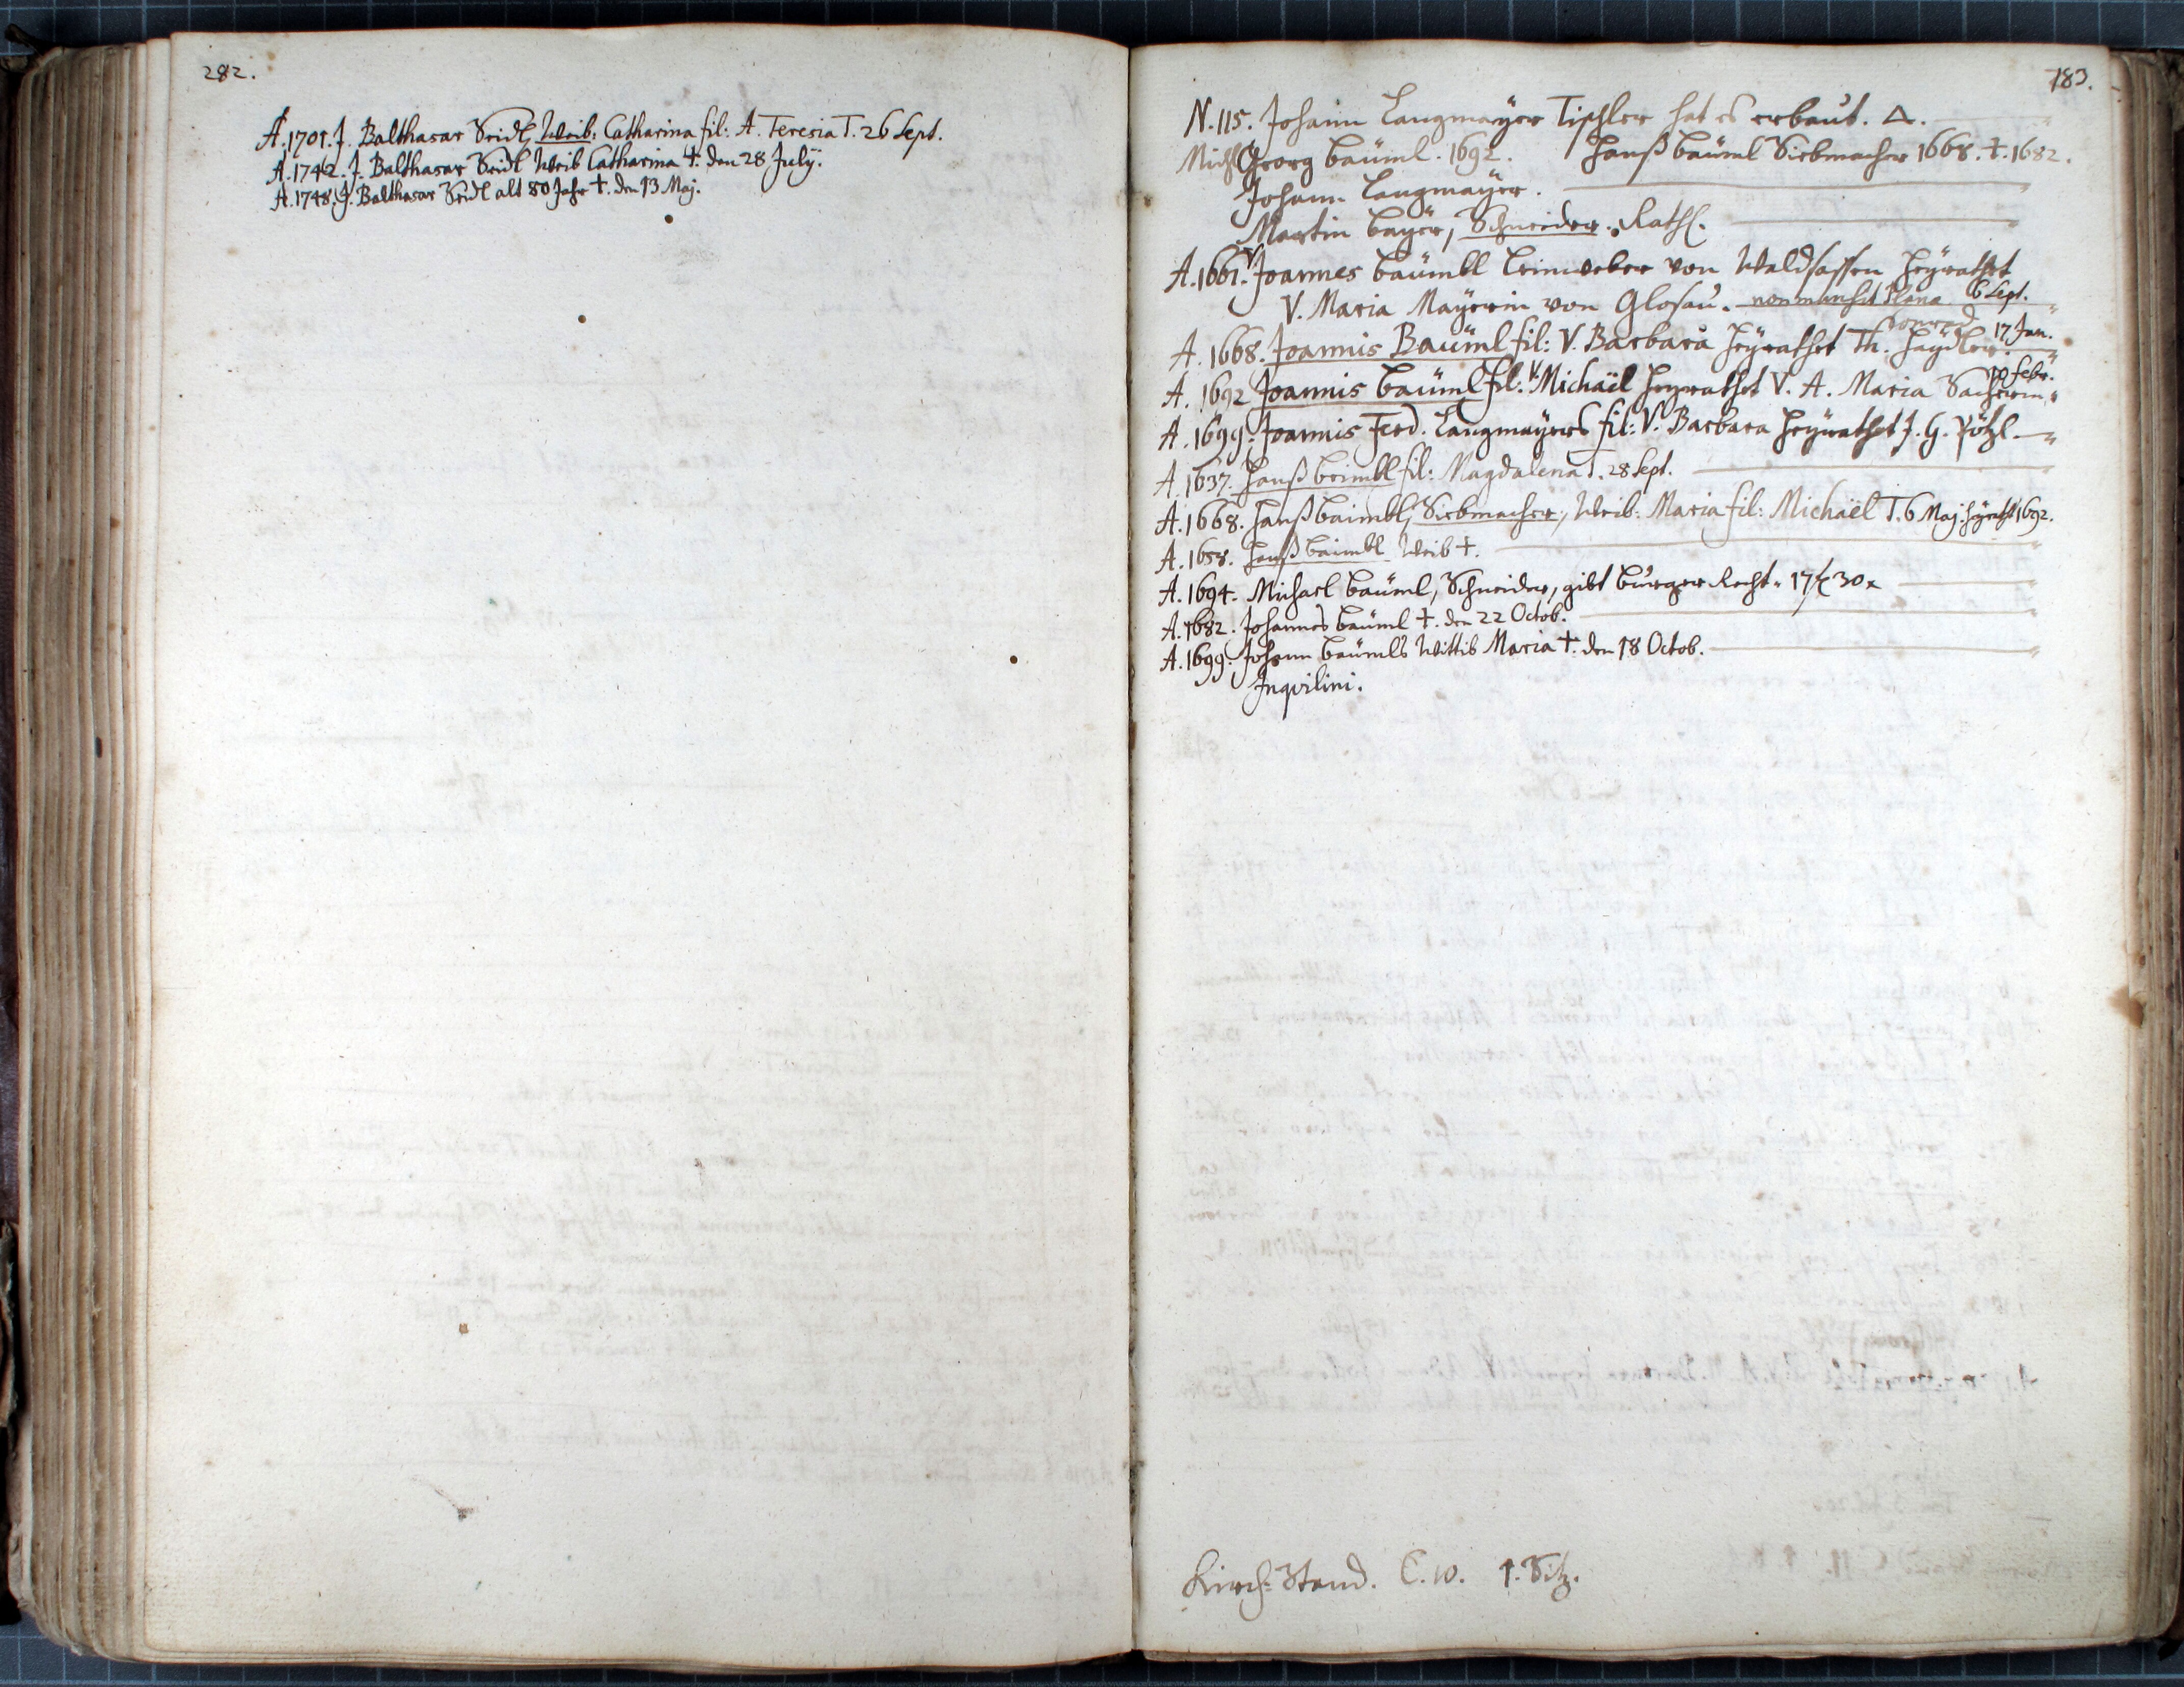 282.
A. 1701. J. Balthasar Seidl, Weib: Catharina fil: A. Teresia T. 26 Sept.
A. 1742. J. Balthasar Seidl Weib Catharina †. den 28 Julÿ.
A. 1748. J. Balthasar Seidl alt 80 Jahr †. den 13 Maj.
183.
N. 115. Johann Langmaÿer Tischler hat es erbaut. Δ.
Michl Georg Baüml. 1692. Hanß Baüml Siebmacher 1668. †. 1682.
Johann Langmaÿer.
Martin Baÿer, Schneider. Rathh.
A. 1661. V Joannes Baümbl Leinweber von Waldsassen heÿrathet
V. Maria Maÿerin von Glosau. non mansit Plana 6 Sept.
A. 1668. Joannis Baüml fil: V. Barbara heÿrathet Th. Haÿdler. 17 Jan.
A. 1692 Joannis Baüml fil: V. Michaël heÿrathet V. A. Maria 10 Febr.
A. 1699. Joannis Ferd. Langmaÿers fil: V. Barbara heÿrathet J. G. Pötzl.
A. 1637. Hanß Beimbl fil: Magdalena T. 28 Sept.
A. 1668. Hanß Baimbl, Siebmacher, Weib: Maria fil: Michaël T. 6 Maj. heÿrath 1692.
A. 1658. Hanß Baimbl Weib †.
A. 1694. Michael Baüml, Schneider, gibt Burger Recht. 17 f 30 x
A. 1682. Johannes Baüml †. den 22 Octob.
A. 1699. Johann Baümls Wittib Maria †. den 18 Octob.
Inqvilini.
Kirch-Stand. C. 10. 1. Sitz.